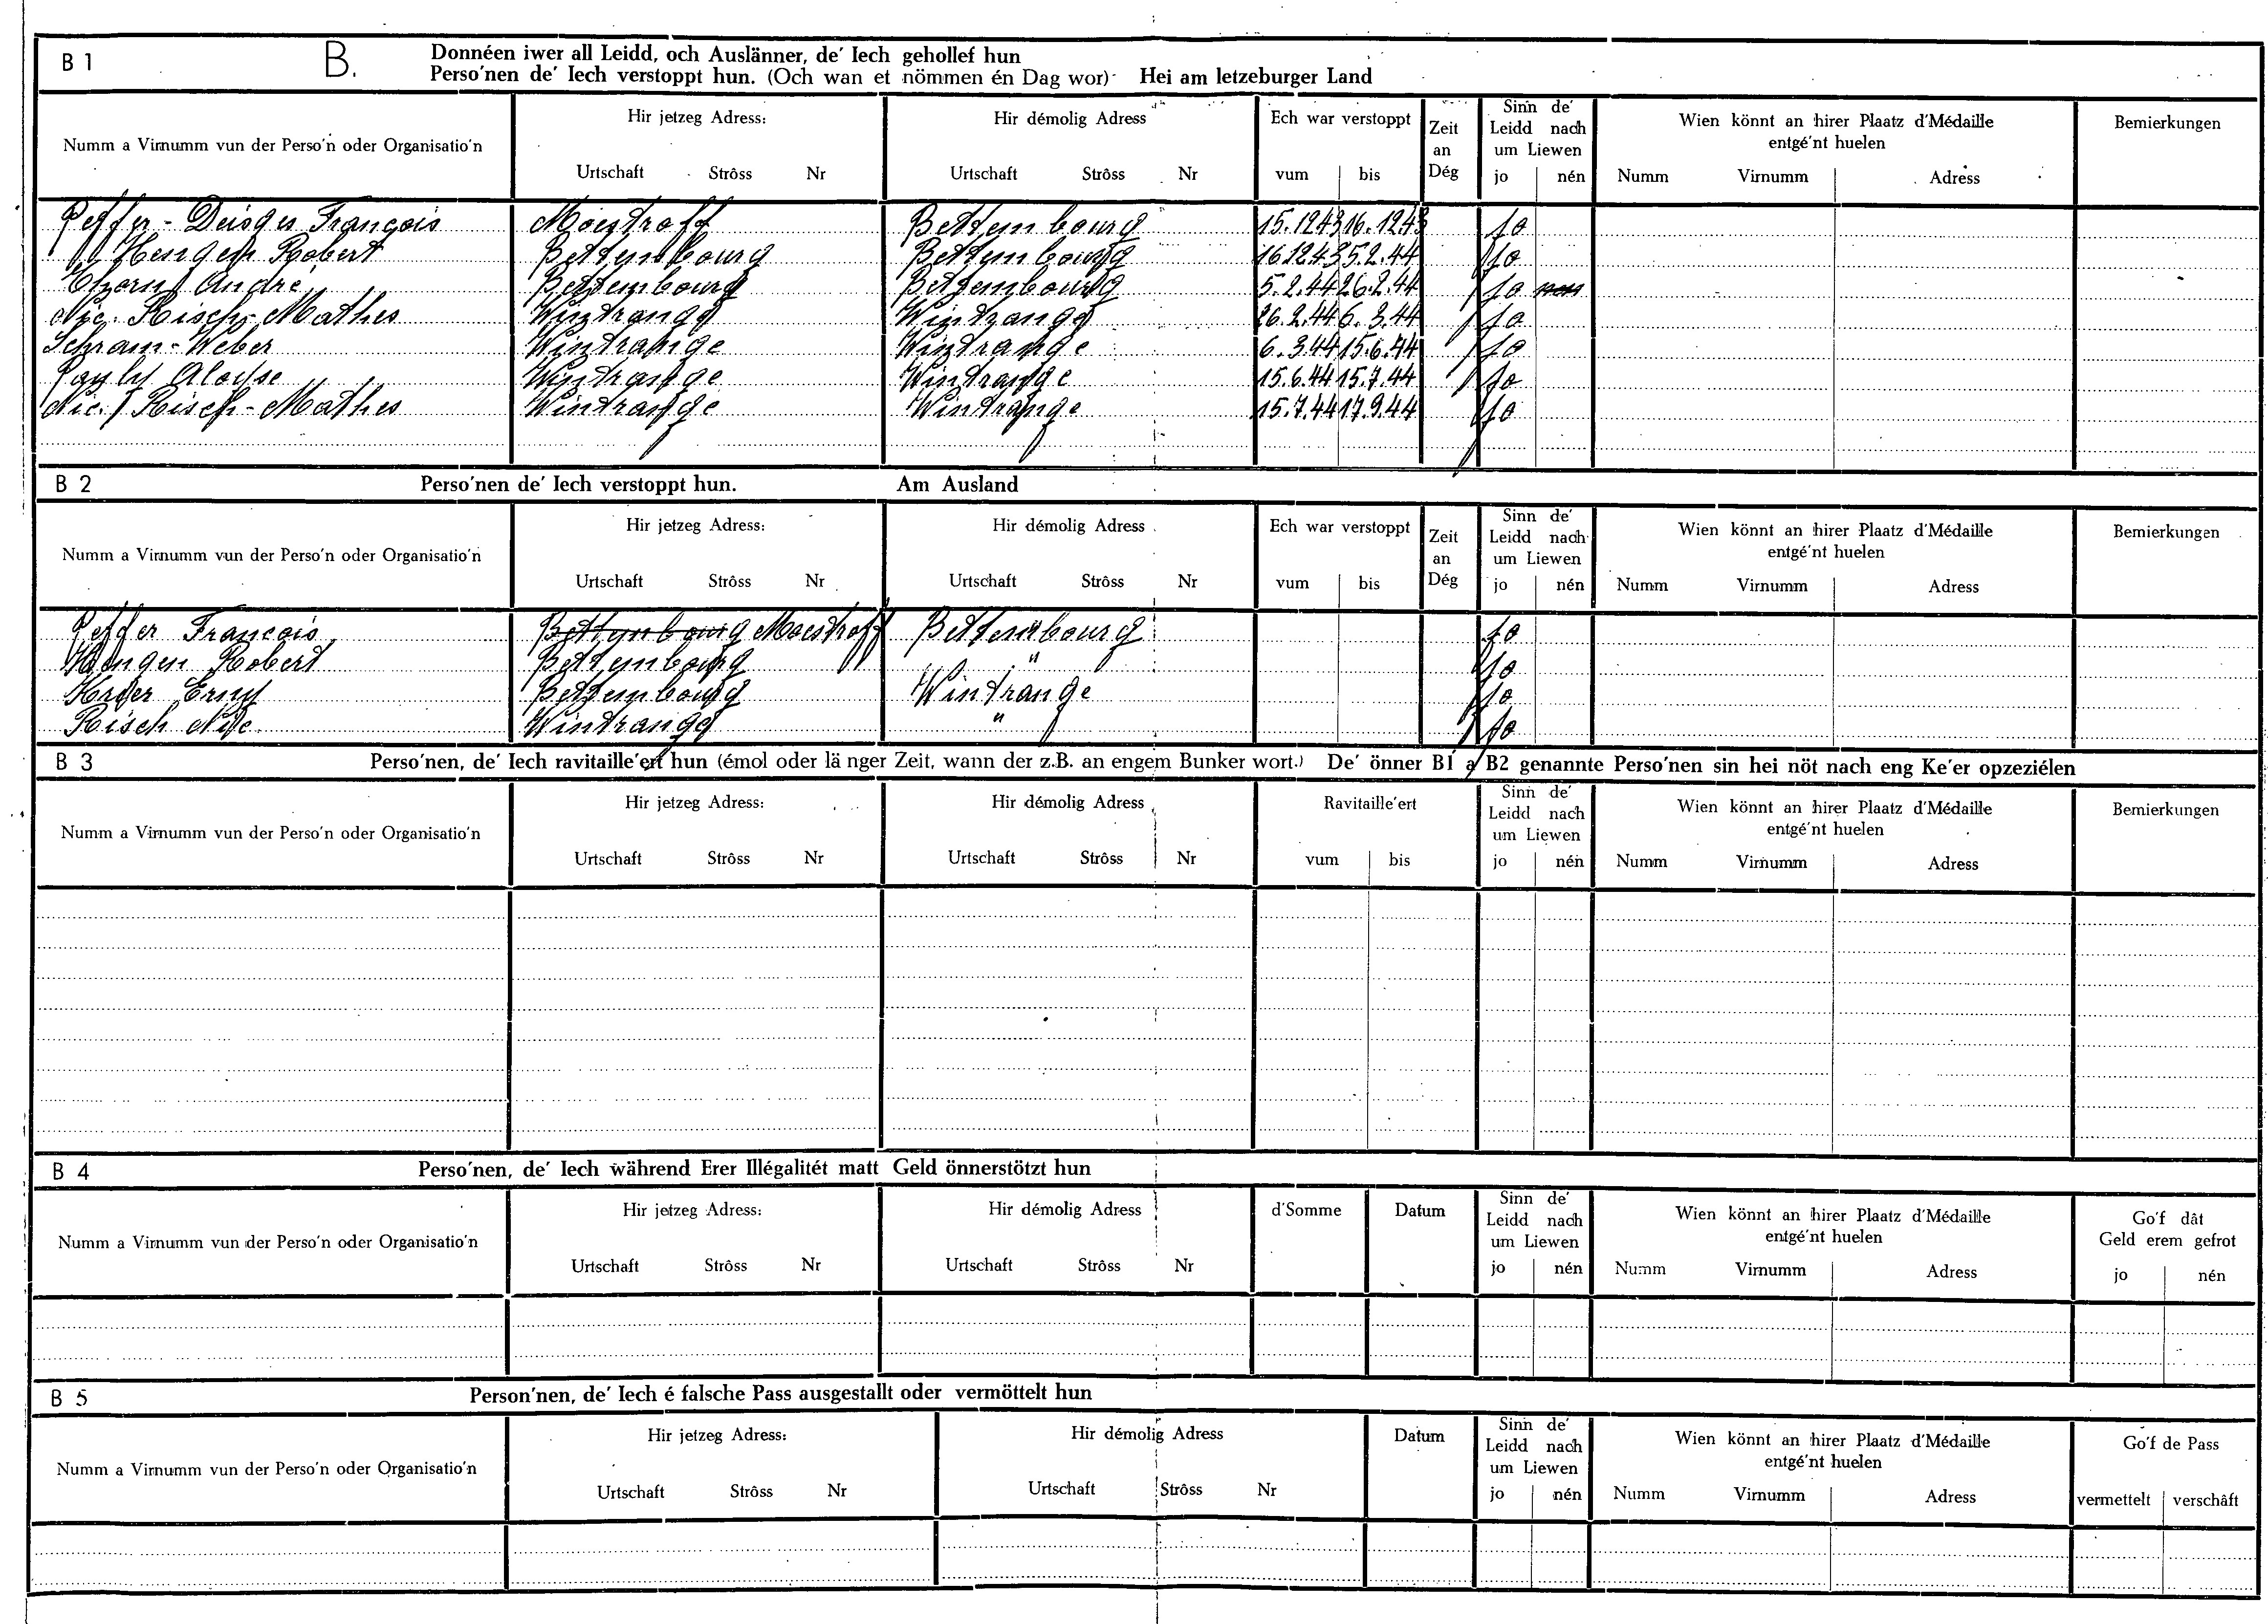 B 1 B. Donnéen iwer all Leidd, och Auslänner, de' Iech gehollef hun
Perso'nen de' Iech verstoppt hun. (Och wan et nömmen én Dag wor) Hei am letzeburger Land
Numm a Virnumm vun der Perso'n oder Organisatio'n
Hir jetzeg Adress:
Urtschaft Strôss Nr
Hir démolig Adress
Urtschaft Strôss Nr
Ech war verstoppt
vum bis
Zeit
an
Dég
Sinn de'
Leidd nach
um Liewen
jo nén
Wien könnt an hirer Plaatz d'Médaille
entgé'nt huelen
Numm Virnumm Adress
Bemierkungen
Peffer - Deisges François Moestroff Bettembourg 15.12.43 16.12.43 jo
Hengen Robert Bettembourg Bettembourg 16.12.43 5.2.44 jo
André Bettembourg Bettembourg 5.2.44 26.2.44 jo
Nic. Risch-Mathes Wintrange Wintrange 26.2.44 6.3.44 jo
Schram-Weber Wintrange Wintrange 6.3.44 15.6.44 jo
Pauly Aloyse Wintrange Wintrange 15.6.44 15.7.44 jo
Nic. Risch-Mathes Wintrange Wintrange 15.7.44 17.9.44 jo
B 2 Perso'nen de' Iech verstoppt hun. Am Ausland
Numm a Virnumm vun der Perso'n oder Organisatio'n
Hir jetzeg Adress:
Urtschaft Strôss Nr
Hir démolig Adress
Urtschaft Strôss Nr
Ech war verstoppt
vum bis
Zeit
an
Dég
Sinn de'
Leidd nach
um Liewen
jo nén
Wien könnt an hirer Plaatz d'Médaille
entgé'nt huelen
Numm Virnumm Adress
Bemierkungen
Peffer François Bettembourg Moestroff Bettembourg jo
Hengen Robert Bettembourg " jo
Erny Bettembourg Wintrange jo
Risch Nic. Wintrange " jo
B 3 Perso'nen, de' Iech ravitaille'ert hun (émol oder länger Zeit, wann der z.B. an engem Bunker wort.) De' önner B1 a B2 genannte Perso'nen sin hei nöt nach eng Ke'er opzeziélen
Numm a Virnumm vun der Perso'n oder Organisatio'n
Hir jetzeg Adress:
Urtschaft Strôss Nr
Hir démolig Adress
Urtschaft Strôss Nr
Ravitaille'ert
vum bis
Sinn de'
Leidd nach
um Liewen
jo nén
Wien könnt an hirer Plaatz d'Médaille
entgé'nt huelen
Numm Virnumm Adress
Bemierkungen
B 4 Perso'nen, de' Iech während Erer Illégalitét matt Geld önnerstötzt hun
Numm a Virnumm vun der Perso'n oder Organisatio'n
Hir jetzeg Adress:
Urtschaft Strôss Nr
Hir démolig Adress
Urtschaft Strôss Nr
d'Somme
Datum
Sinn de'
Leidd nach
um Liewen
jo nén
Wien könnt an hirer Plaatz d'Médaille
entgé'nt huelen
Numm Virnumm Adress
Go'f dât
Geld erem gefrot
jo nén
B 5 Person'nen, de' Iech é falsche Pass ausgestallt oder vermöttelt hun
Numm a Virnumm vun der Perso'n oder Organisatio'n
Hir jetzeg Adress:
Urtschaft Strôss Nr
Hir démolig Adress
Urtschaft Strôss Nr
Datum
Sinn de'
Leidd nach
um Liewen
jo nén
Wien könnt an hirer Plaatz d'Médaille
entgé'nt huelen
Numm Virnumm Adress
Go'f de Pass
vermettelt verschâft